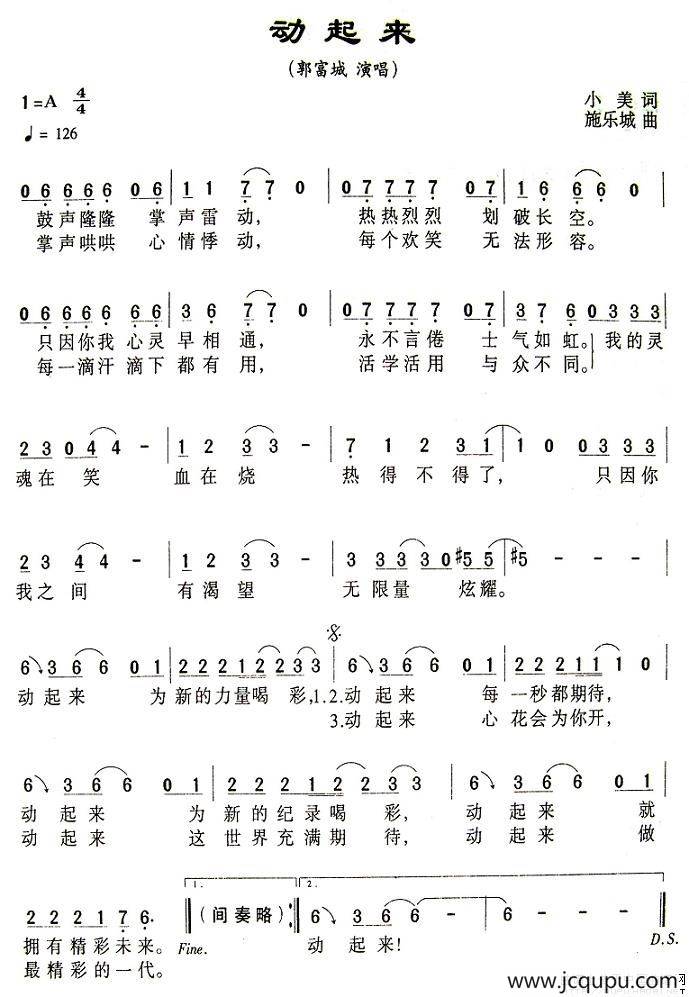 动起来
(郭富城 演唱)
1=A 4/4
小美词
♩= 126
施乐城 曲
0 6 6 6 6 6 0 6 | 1 1 7 7 0 | 0 7 7 7 7 7 0 7 | 1 6 6 6 0 |
鼓声隆隆 掌声雷动, 热热烈烈 划破长空。
掌声哄哄 心情悸动, 每个欢笑 无法形容。
0 6 6 6 6 6 6 6 | 3 6 7 7 0 | 0 7 7 7 7 7 0 7 | 3 7 6 0 3 3 3 |
只因你我 心灵早相通, 永不言倦 士气如虹。我的灵
每一滴汗 滴下都有用, 活学活用 与众不同。
2 3 0 4 4 - | 1 2 3 3 - | 7 1 2 3 1 | 1 0 0 3 3 3 |
魂在笑 血在烧 热得不得了, 只因你
2 3 4 4 - | 1 2 3 3 - | 3 3 3 3 0 #5 5 | #5 - - - |
我之间 有渴望 无限量 炫耀。
6 3 6 6 0 1 | 2 2 2 1 2 2 3 3 | 6 3 6 6 0 1 | 2 2 2 1 1 1 0 |
动起来 为新的力量喝彩,1.2.动起来 每一秒都期待,
3.动起来 心花会为你开,
6 3 6 6 0 1 | 2 2 2 1 2 2 3 3 | 6 3 6 6 0 1 |
动起来 为新的纪录喝彩, 动起来 就
动起来 这世界充满期待, 动起来 做
1. 2.
2 2 2 1 7 6. (间奏略) 6 3 6 6 - - | 6 - - 0
拥有精彩未来。 Fine. 动起来! D.S.
最精彩的一代。
www.jcqupu.com